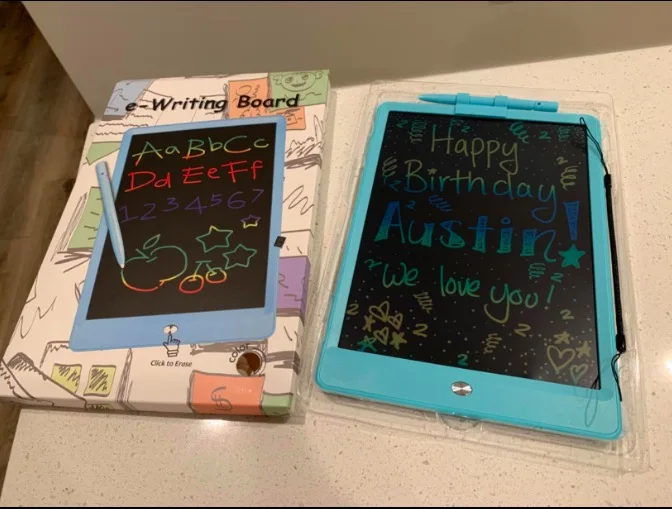 e-Writing Board
AaBbCc
Dd EeFf
1234567
Click to Erase
color
Happy
Birthday
Austin!
we love you!
2
2
2
2
2
2
2
2